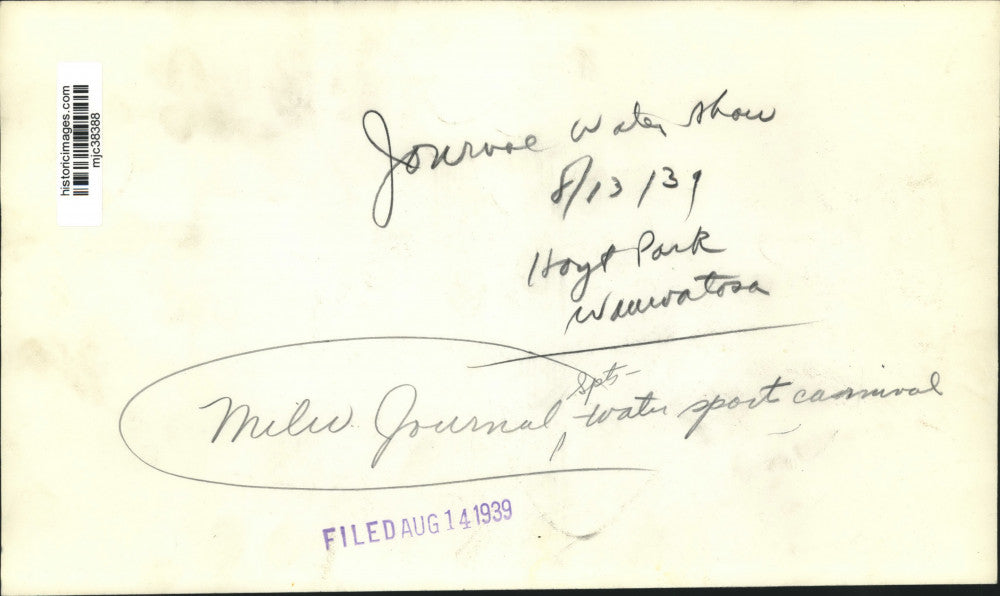 historicimages.com
mjc38388
Journal Water Show
8/13/39
Hoyt Park
Wauwatosa
Spts-
Milw. Journal, water sports carnival
FILED AUG 14 1939